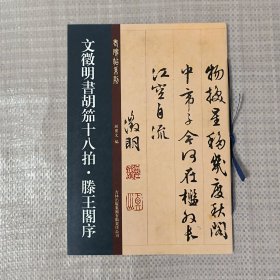 文徵明書胡笳十八拍·滕王閣序
編
物換星移幾度秋閣
中帝子今何在檻外長
江空自流
徵明